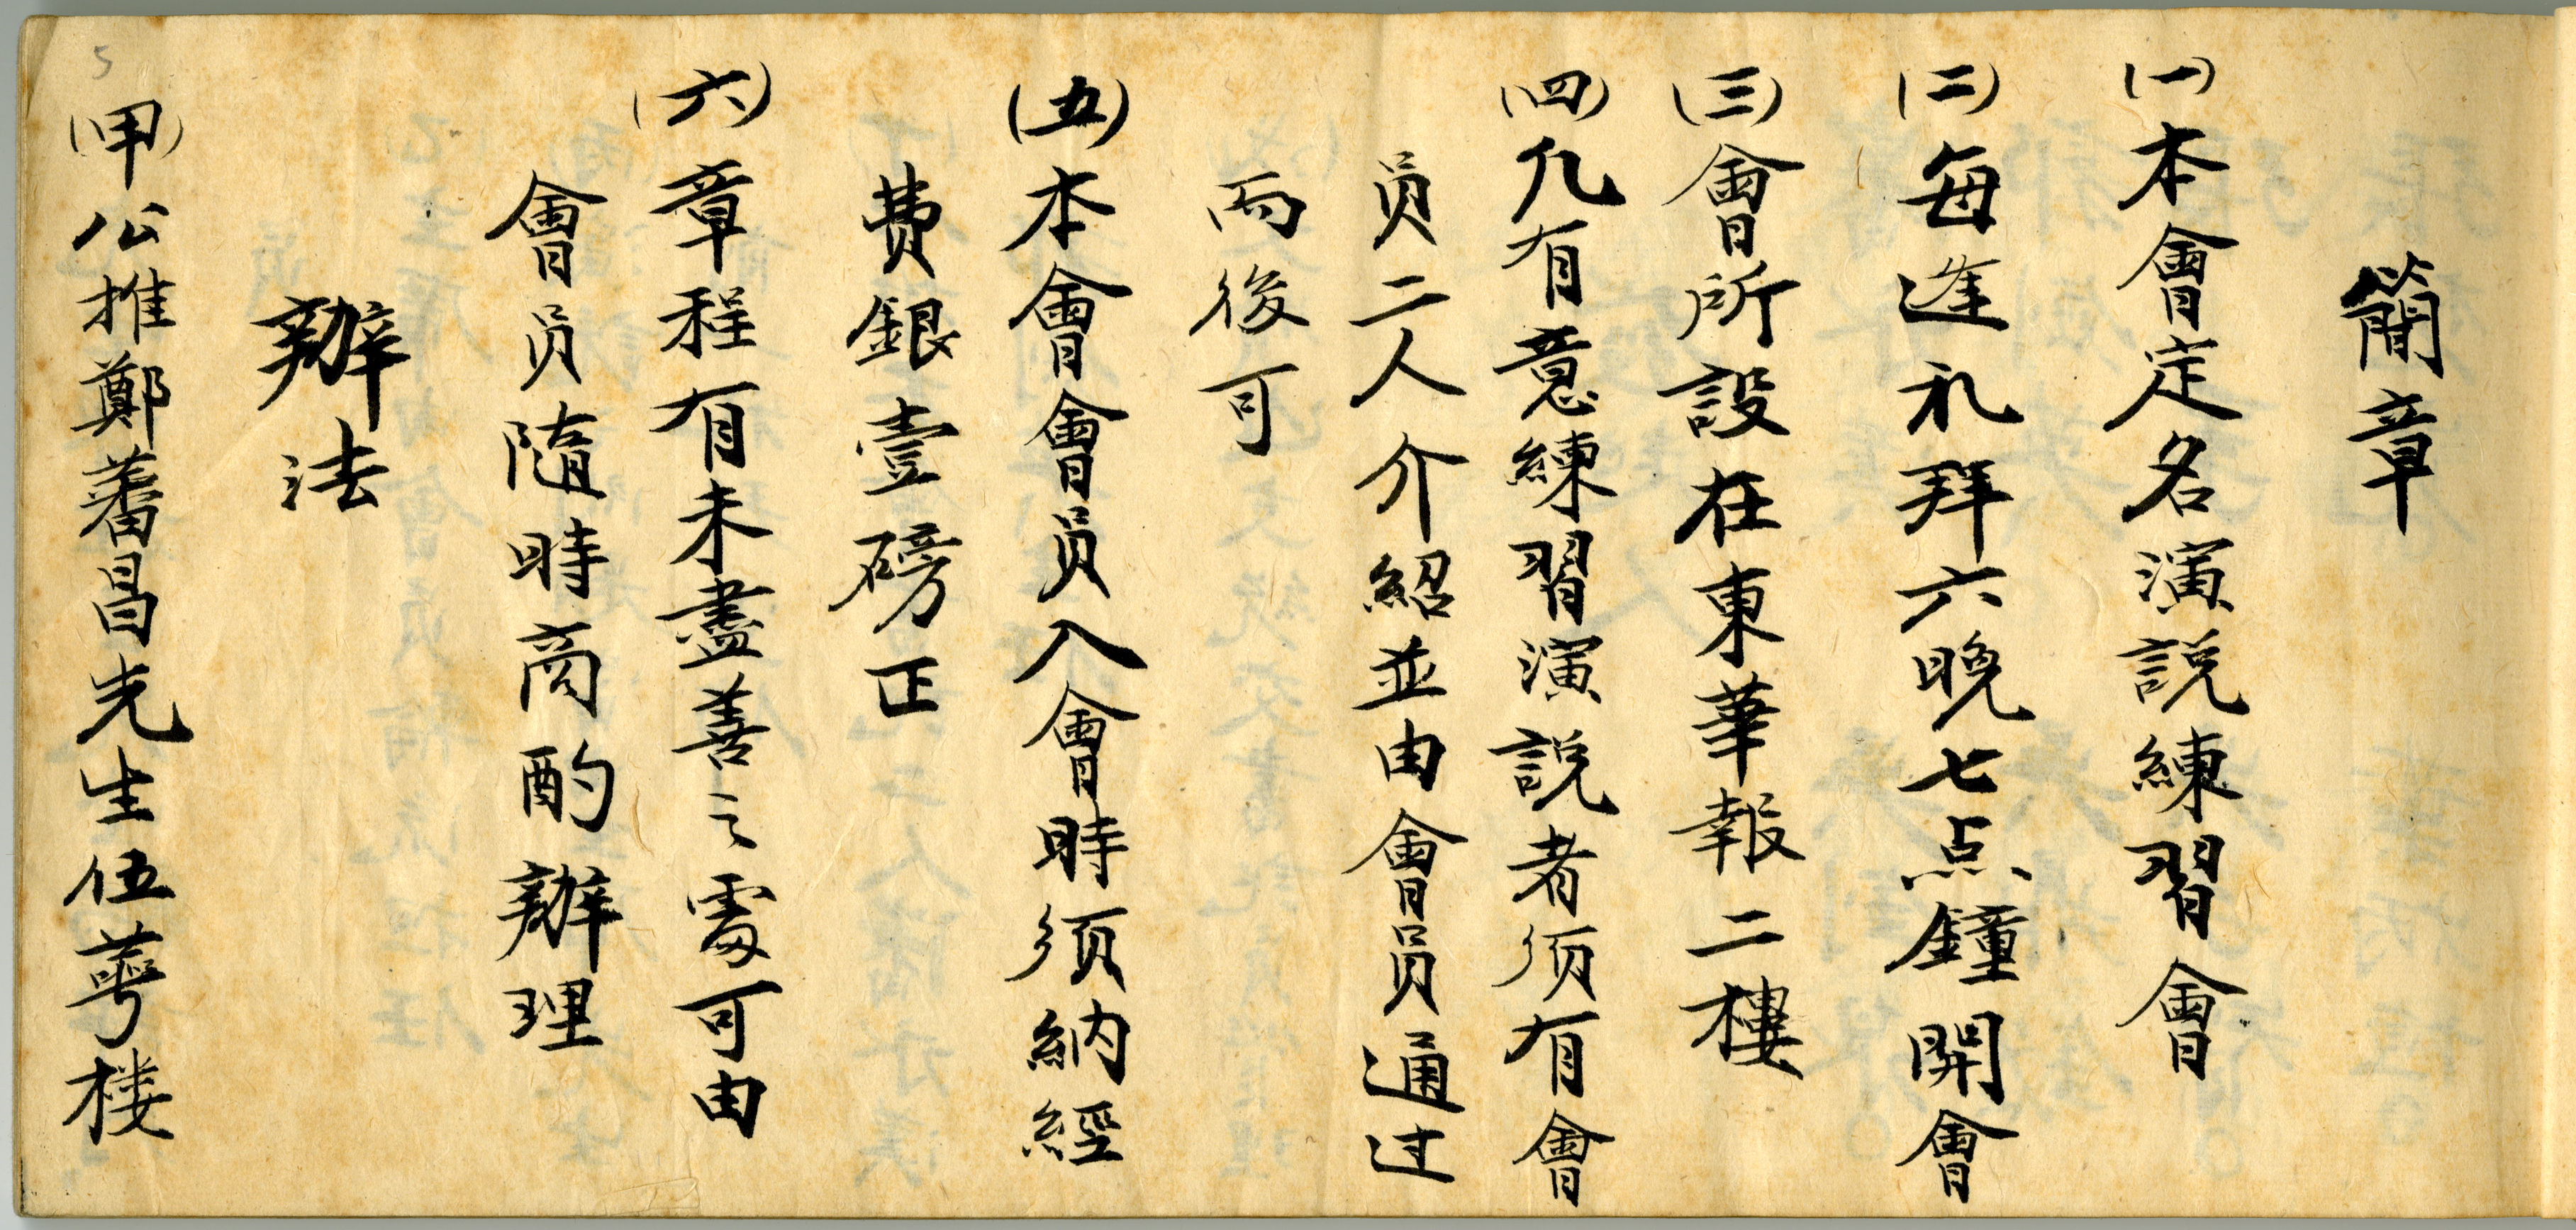 簡章
(一)本會定名演説練習會
(二)每逢礼拜六晚七点鐘開會
(三)會所設在東華報二樓
(四)凢有意練習演説者须有會
员二人介紹並由會员通过
而後可
(五)本會會员入會時须納經
费銀壹磅正
(六)章程有未盡善之處可由
會员隨時商酌辦理
辦法
(甲)公推鄭蕃昌先生伍萼楼
5